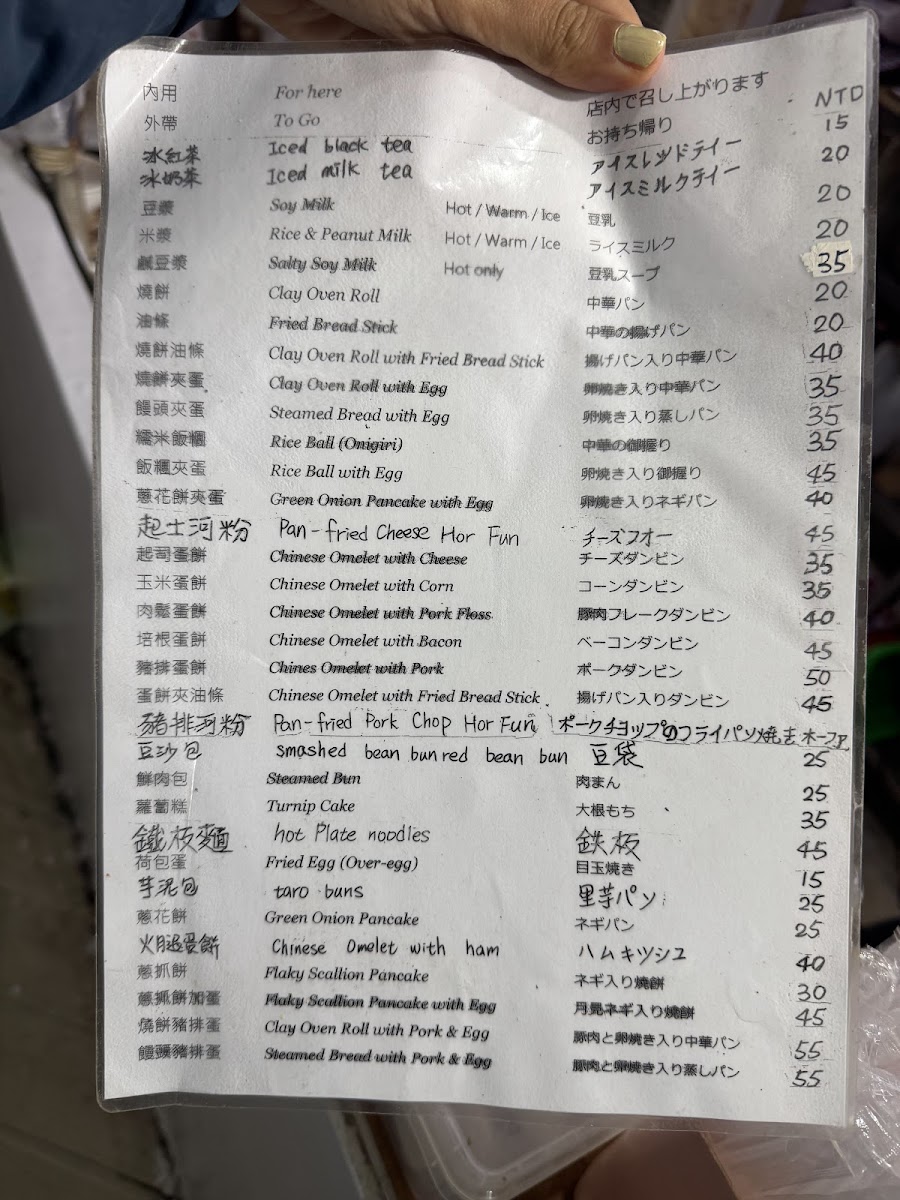 內用 For here 店内で召し上がります NTD
外帶 To Go お持ち帰り 15
冰紅茶 Iced black tea アイスレッドティー 20
冰奶茶 Iced milk tea アイスミルクティー
豆漿 Soy Milk Hot / Warm / Ice 豆乳 20
米漿 Rice & Peanut Milk Hot / Warm / Ice ライスミルク 20
鹹豆漿 Salty Soy Milk Hot only 豆乳スープ 35
燒餅 Clay Oven Roll 中華パン 20
油條 Fried Bread Stick 中華の揚げパン 20
燒餅油條 Clay Oven Roll with Fried Bread Stick 揚げパン入り中華パン 40
燒餅夾蛋 Clay Oven Roll with Egg 卵焼き入り中華パン 35
饅頭夾蛋 Steamed Bread with Egg 卵焼き入り蒸しパン 35
糯米飯糰 Rice Ball (Onigiri) 中華の御握り 35
飯糰夾蛋 Rice Ball with Egg 卵焼き入り御握り 45
蔥花餅夾蛋 Green Onion Pancake with Egg 卵焼き入りネギパン 40
起士河粉 Pan-fried Cheese Hor Fun チーズフオー 45
起司蛋餅 Chinese Omelet with Cheese チーズダンビン 35
玉米蛋餅 Chinese Omelet with Corn コーンダンビン 35
肉鬆蛋餅 Chinese Omelet with Pork Floss 豚肉フレークダンビン 40
培根蛋餅 Chinese Omelet with Bacon ベーコンダンビン 45
豬排蛋餅 Chines Omelet with Pork ポークダンビン 50
蛋餅夾油條 Chinese Omelet with Fried Bread Stick 揚げパン入りダンビン 45
豬排河粉 Pan-fried Pork Chop Hor Fun ポークチョップのフライパン焼き ホーファ
豆沙包 smashed bean bun red bean bun 豆袋 25
鮮肉包 Steamed Bun 肉まん 25
蘿蔔糕 Turnip Cake 大根もち 35
鐵板麵 hot Plate noodles 鉄板 45
荷包蛋 Fried Egg (Over-egg) 目玉焼き 15
芋泥包 taro buns 里芋パン 25
蔥花餅 Green Onion Pancake ネギパン 25
火腿蛋餅 Chinese Omelet with ham ハムキツシユ 40
蔥抓餅 Flaky Scallion Pancake ネギ入り燒餅 30
蔥抓餅加蛋 Flaky Scallion Pancake with Egg ネギ入り燒餅 45
燒餅豬排蛋 Clay Oven Roll with Pork & Egg 豚肉と卵焼き入り中華パン 55
饅頭豬排蛋 Steamed Bread with Pork & Egg 豚肉と卵焼き入り蒸しパン 55